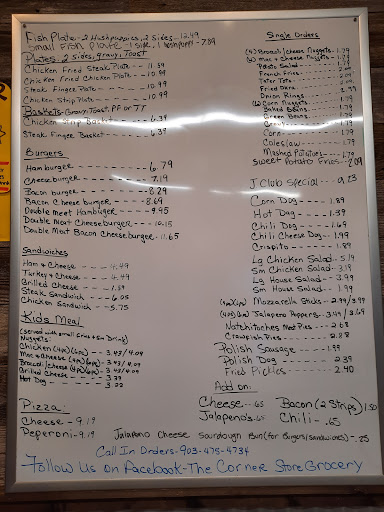 Fish Plate - 2 Hushpuppies, 2 sides - 12.49
Small Fish Plate 1 side, 1 hushpuppy - 7.89
Plates - 2 sides, gravy, Toast
Chicken Fried Steak Plate - - - 11.59
Chicken Fried Chicken Plate - - - 10.99
Steak Finger Plate - - - - 10.99
Chicken Strip Plate - - - - 10.99
Baskets - Gravy, Toast, FF or TT
Chicken Strip Basket - - - - 6.39
Steak Finger Basket - - - - 6.39
Burgers
Hamburger - - - - - - - 6.79
Cheeseburger - - - - - - 7.19
Bacon burger - - - - - 8.29
Bacon Cheeseburger - - - - 8.69
Double meat Hamburger - - - - 9.95
Double Meat Cheeseburger - - - 10.15
Double Meat Bacon Cheeseburger - 11.65
Sandwiches
Ham & Cheese - - - - 4.49
Turkey & Cheese - - - - 4.49
Grilled Cheese - - - - 1.59
Steak Sandwich - - - 6.05
Chicken Sandwich - - - 5.75
Kids Meal
(served with small fries & sm Drink)
Nuggets:
Chicken (4pc) (6pc) - - 3.43/4.09
Mac & Cheese (4pc) (6pc) - - 3.43/4.09
Brocoli/cheese (4pc) (6pc) - 3.43/4.09
Grilled Cheese - - - - 3.22
Hot Dog - - - - - 3.22
Pizza:
Cheese - 9.19
Peperoni - 9.19
Single Orders
(4) Brocoli/cheese Nuggets - 1.79
(6) Mac & Cheese Nuggets - - 1.79
Potato Salad - - - - 1.79
French Fries - - - - 1.79
Tater Tots - - - - 1.79
Fried Okra - - - - 2.99
Onion Rings - - - - 1.79
(6) Corn Nuggets - - - - 1.79
Baked Beans - - - - 1.79
Green Beans - - - - 1.79
Gravy - - - - 1.79
Corn - - - - 1.79
Coleslaw - - - - 1.79
Mashed Potatoes - - - 1.79
Sweet Potato Fries - 2.09
J Club Special - - 9.23
Corn Dog - - - - 1.89
Hot Dog - - - - 1.39
Chili Dog - - - - 1.69
Chili Cheese Dog - - 1.99
Crispito - - - - 1.89
Lg Chicken Salad - 5.19
Sm Chicken Salad - 3.19
Lg House Salad - - 3.99
Sm House Salad - - 1.99
(4pc/6pc) Mozzarella Sticks - 2.99/3.99
(4pc/6pc) Jalapeno Poppers - 3.49/3.69
Natchitoches Meat Pies - - 2.68
Crawfish Pies - - - 2.88
Polish Sausage - - - 1.99
Polish Dog - - - - 2.39
Fried Pickles - - - 2.40
Add on:
Cheese - .65 Bacon (2 Strips) 1.50
Jalapeno's .65 Chili - .65
Jalapano Cheese Sourdough Bun (for burgers/sandwiches) - .25
Call In Orders - 903-475-4734
Follow Us on Facebook - The Corner Store Grocery